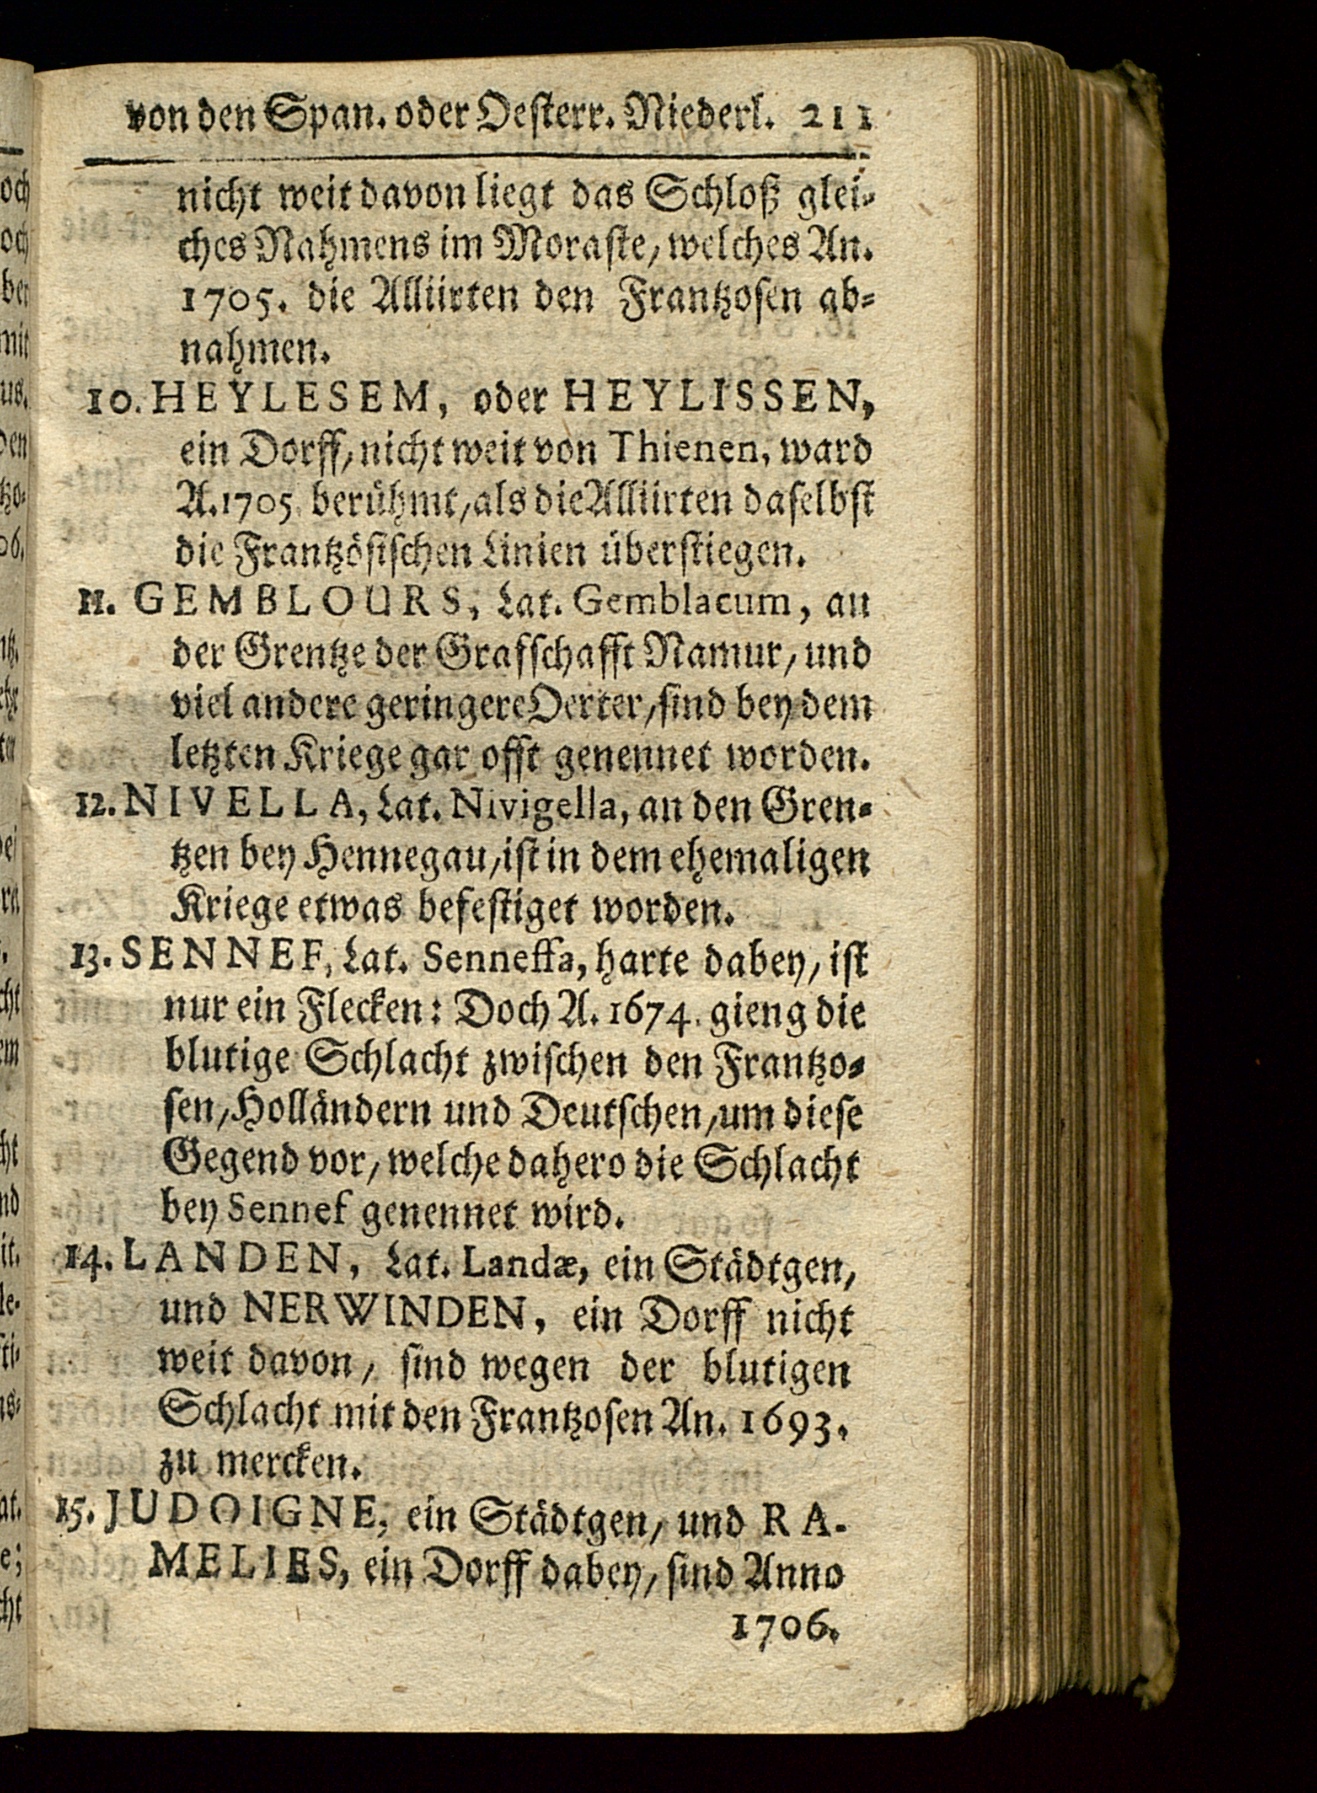 von den Span. oder Oesterr. Niederl. 211
nicht weit davon liegt das Schloß glei-
ches Nahmens im Moraste, welches An.
1705. die Alliirten den Frantzosen ab-
nahmen.
10. HEYLESEM, oder HEYLISSEN,
ein Dorff, nicht weit von Thienen, ward
A. 1705. berühmt, als die Alliirten daselbst
die Frantzösischen Linien überstiegen.
11. GEMBLOURS, Lat. Gemblacum, an
der Grentze der Grafschafft Namur, und
viel andere geringere Oerter, sind bey dem
letzten Kriege gar offt genennet worden.
12. NIVELLA, Lat. Nivigella, an den Gren-
tzen bey Hennegau, ist in dem ehemaligen
Kriege etwas befestiget worden.
13. SENNEF, Lat. Senneffa, harte dabey, ist
nur ein Flecken: Doch A. 1674. gieng die
blutige Schlacht zwischen den Frantzo-
sen, Holländern und Deutschen, um diese
Gegend vor, welche dahero die Schlacht
bey Sennef genennet wird.
14. LANDEN, Lat. Landæ, ein Städtgen,
und NERWINDEN, ein Dorff nicht
weit davon, sind wegen der blutigen
Schlacht mit den Frantzosen An. 1693.
zu mercken.
15. JUDOIGNE, ein Städtgen, und RA-
MELIES, ein Dorff dabey, sind Anno
1706.